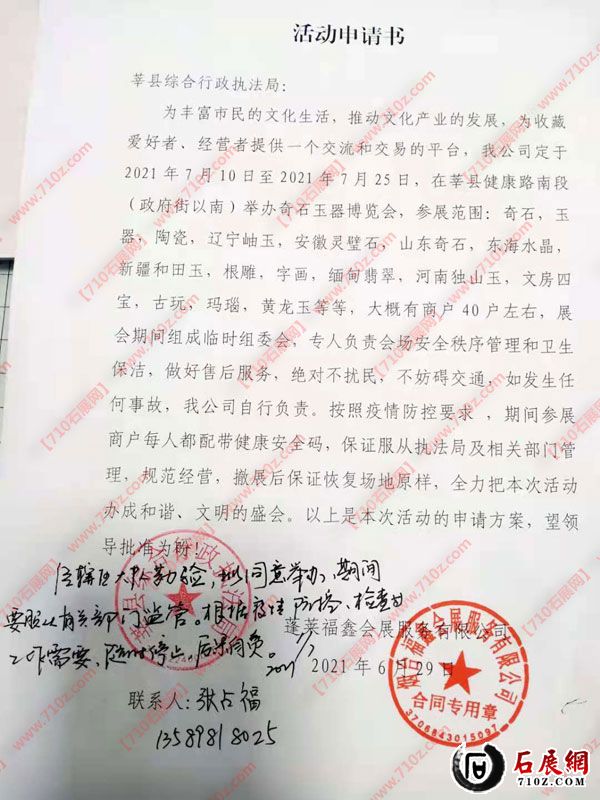 活动申请书
莘县综合行政执法局：
为丰富市民的文化生活，推动文化产业的发展，为收藏
爱好者、经营者提供一个交流和交易的平台，我公司定于
2021年7月10日至2021年7月25日，在莘县健康路南段
（政府街以南）举办奇石玉器博览会，参展范围：奇石，玉
器，陶瓷，辽宁岫玉，安徽灵璧石，山东奇石，东海水晶，
新疆和田玉，根雕，字画，缅甸翡翠，河南独山玉，文房四
宝，古玩，玛瑙，黄龙玉等等，大概有商户40户左右，展
会期间组成临时组委会，专人负责会场安全秩序管理和卫生
保洁，做好售后服务，绝对不扰民，不妨碍交通，如发生任
何事故，我公司自行负责。按照疫情防控要求，期间参展
商户每人都配带健康安全码，保证服从执法局及相关部门管
理，规范经营，撤展后保证恢复场地原样，全力把本次活动
办成和谐、文明的盛会。以上是本次活动的申请方案，望领
导批准为盼！
经辖区大队勘验，拟同意举办，期间
要服从有关部门监管。根据疫情防控、检查
工作需要，随时停止，后果自负。
2021
蓬莱福鑫会展服务有限公司
2021年6月29日
合同专用章
3706843015097
联系人：张占福
13589818025
石展網
710z.COM
【710石展网】
www.710z.com